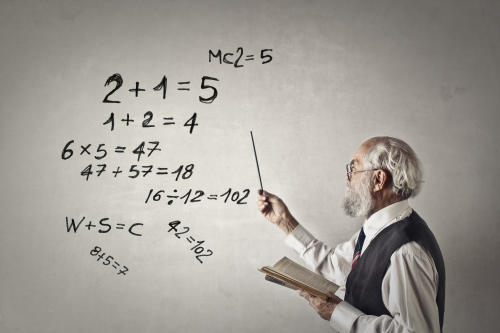 Mc2 = 5
2 + 1 = 5
1 + 2 = 4
6 × 5 = 47
47 + 57 = 18
16 ÷ 12 = 102
W + S = C
8+5=7